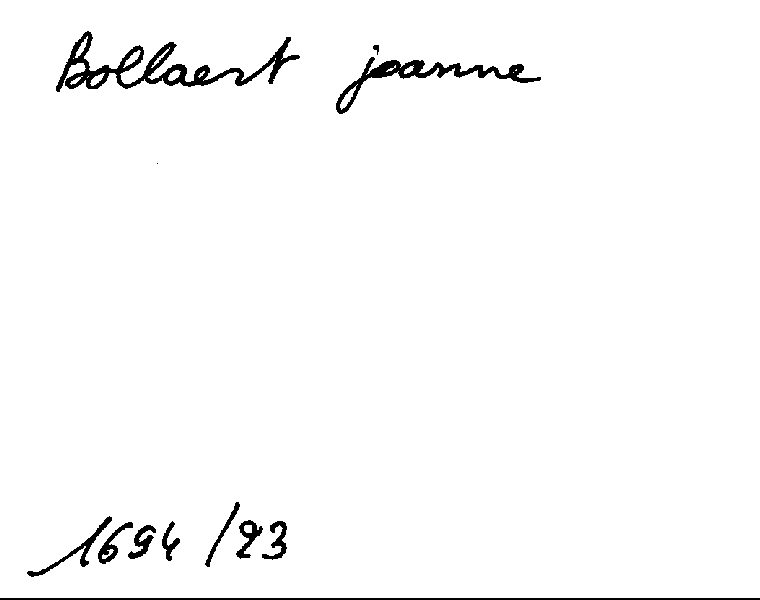 Bollaert joanne
1694/23